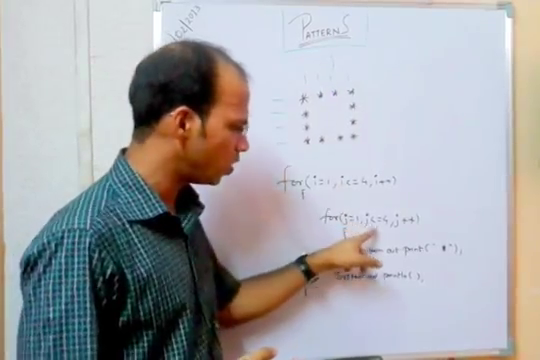 /02/2013
PATTERNS
* * * *
* *
* *
* * * *
for(i=1, i<=4, i++)
{
for(j=1, j<=4, j++)
{
out.print(" * ");
System.out.println( );